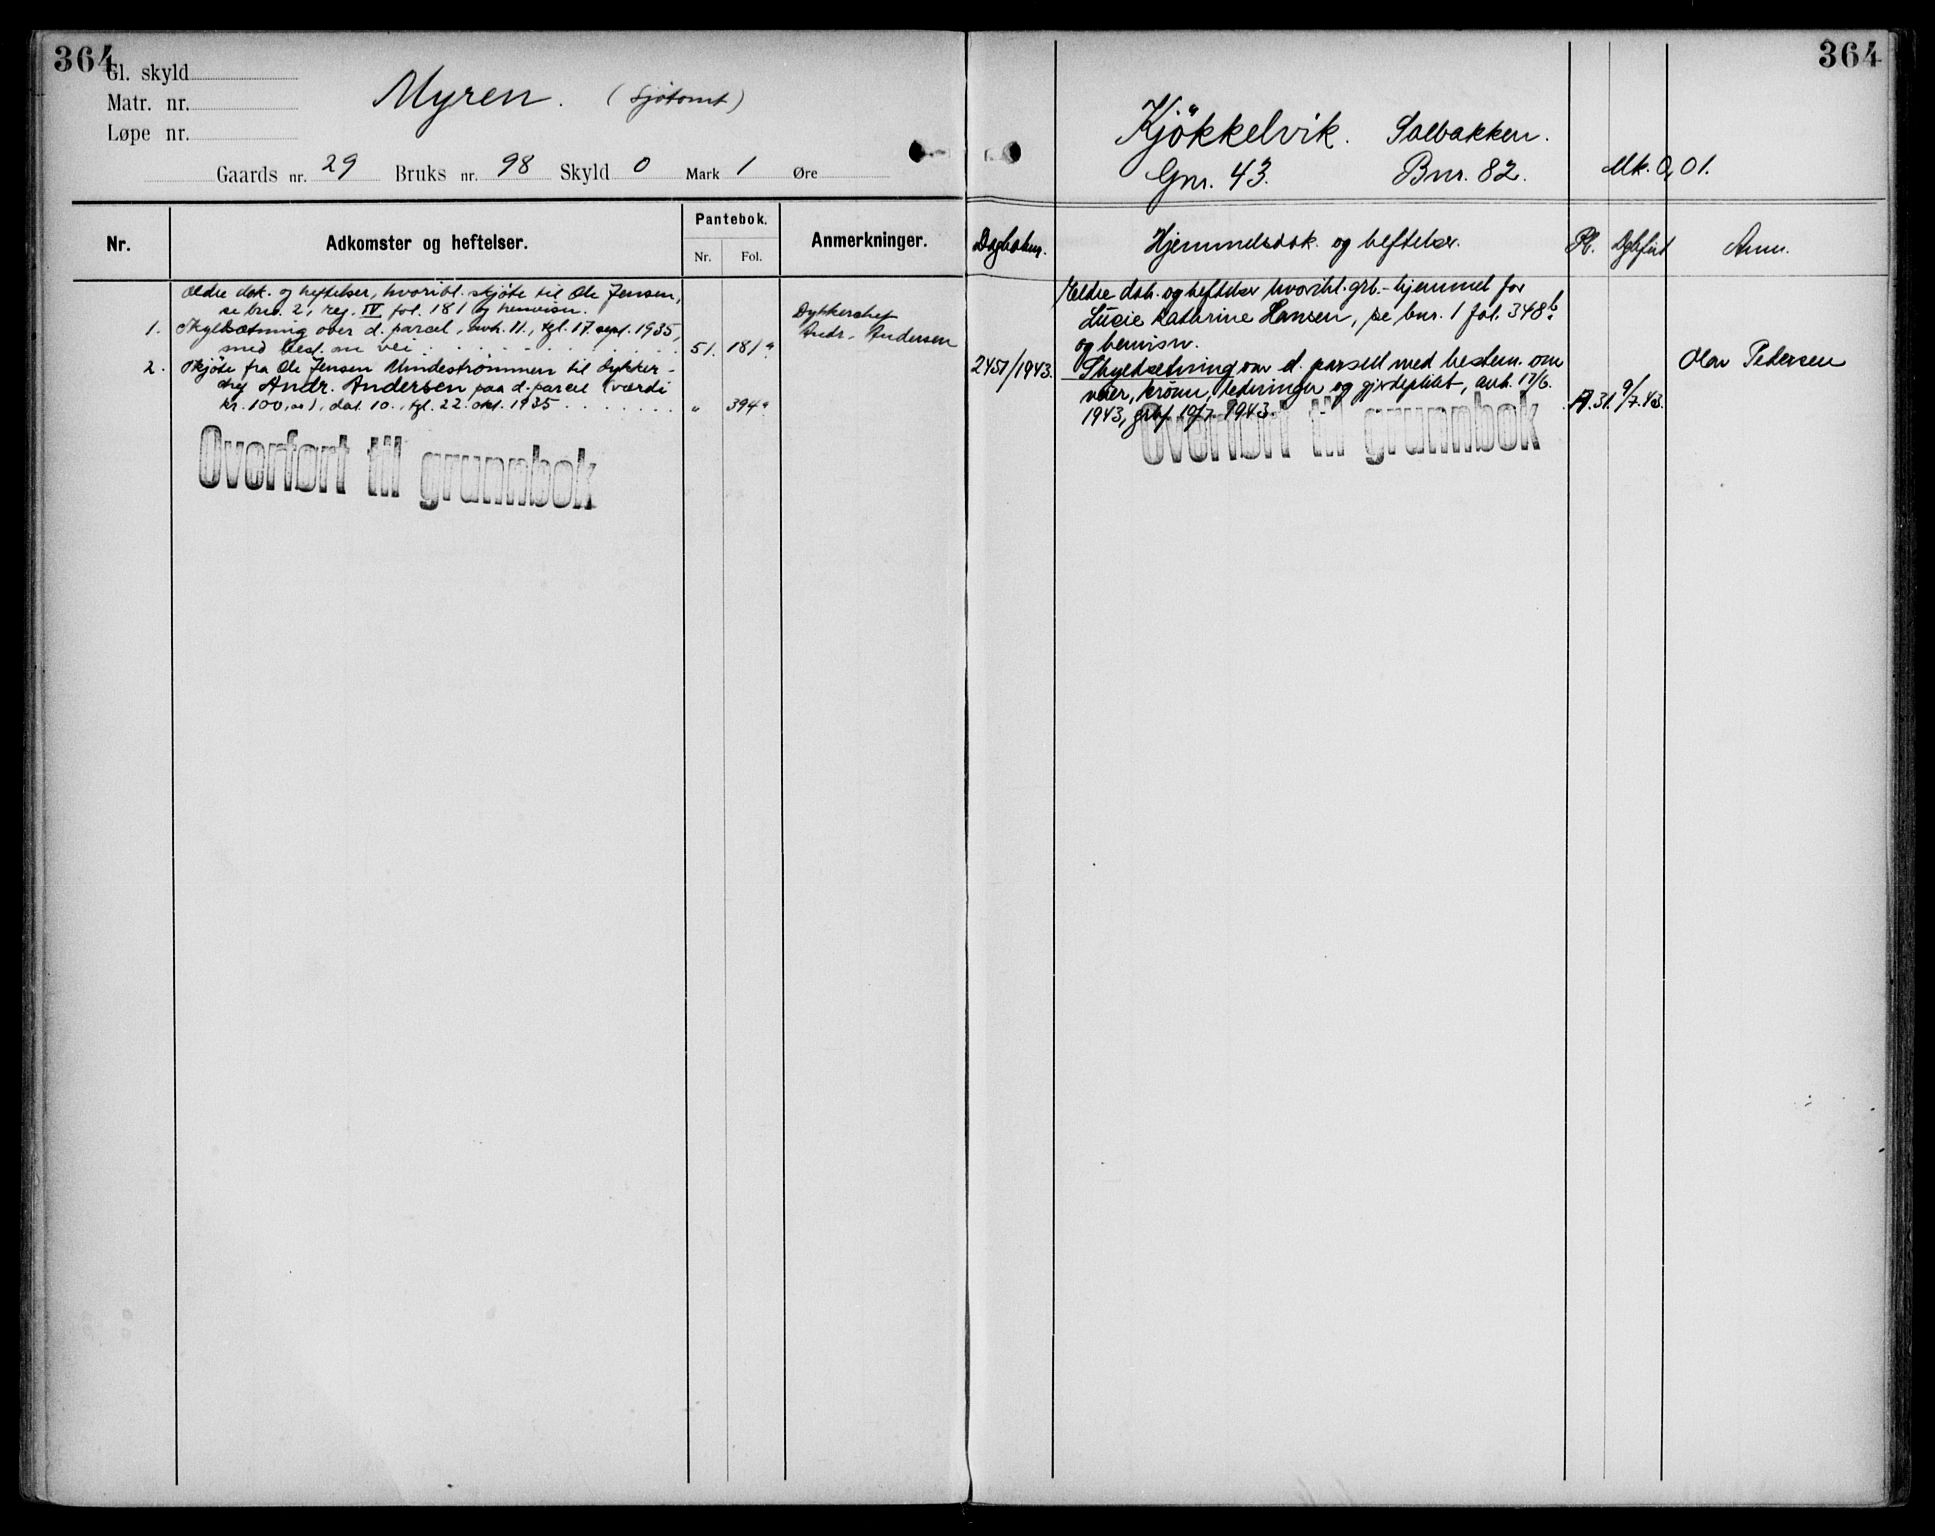 364
Gl. skyld
Matr. nr.
Løpe nr.
Myren. (Sjøtomt)
Gaards nr. 29 Bruks nr. 98 Skyld 0 Mark 1 Øre
Nr.
Adkomster og heftelser.
Pantebok.
Nr. Fol.
Anmerkninger.
Ældre dok. og heftelser, hvoribl. skjøte til Ole Jensen,
se bnr. 2, reg. IV fol. 181 og henvisn.
1. Skyldsætning over d. parcel, avh. 11., tgl. 17. sept. 1935,
med best. om vei 51. 181a
Dykkerchef
Andr. Andersen
2. Skjøte fra Ole Jensen Mindestrømmen til dykker-
chef Andr. Andersen paa d. parcel (værdi
kr. 100,00), dat. 10., tgl. 22. okt. 1935 " 394a
Overført til grunnbok
364
Kjökkelvik. Solbakken.
Gnr. 43. Bnr. 82. Mk. 0,01.
Dagboknr.
Hjemmelsdok. og heftelser.
Pb. Dgbført Anm.
Eldre dok. og heftelser hvoribl. grb.-hjemmel for
Lucie Kathrine Hansen, se bnr. 1 fol. 348b
og henvisn.
2451/1943. Skyldsetning over d. parsell med bestem. om
veier, strøm, ledninger og gjerdeplikt, avh. 17/6.
1943, grbf. 19/7-1943. A.31. 9/7.43.
Olav Pedersen
Overført til grunnbok